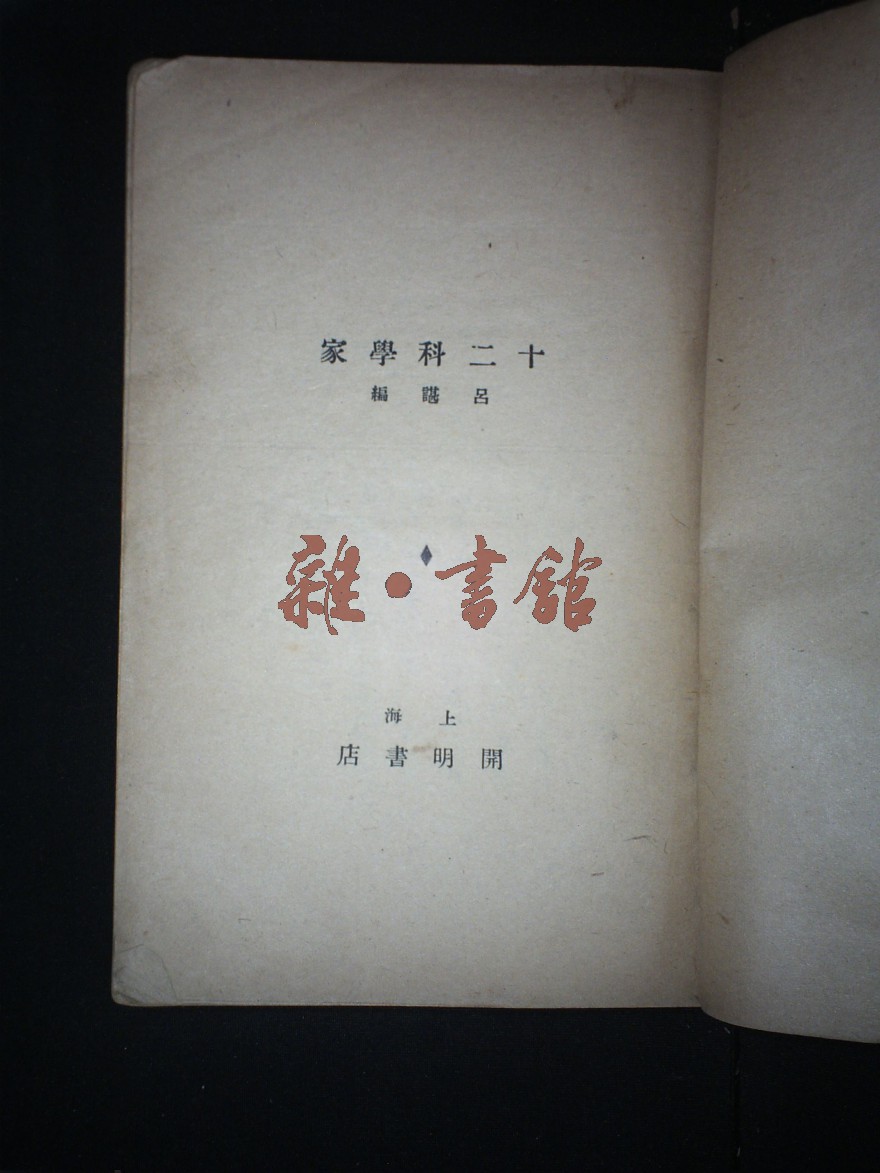 十二科學家
呂諶編
雜·書館
上海
開明書店